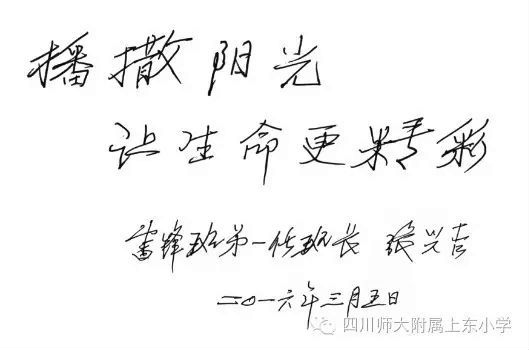 播撒阳光
让生命更精彩
雷锋班第一任班长 张兴吉
二〇一六年三月五日
四川师大附属上东小学